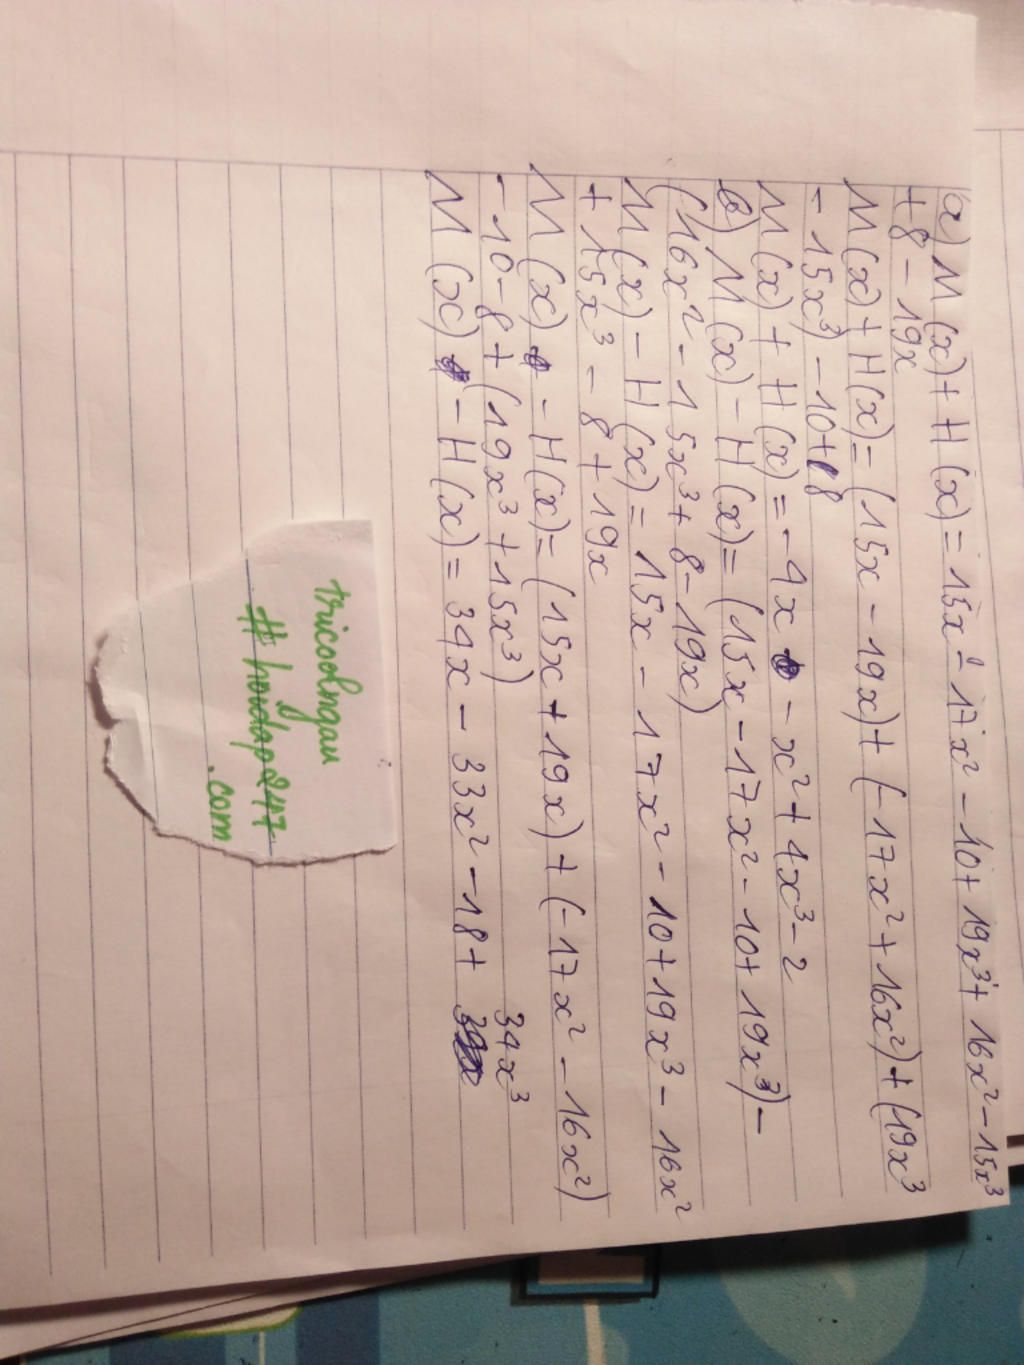 a) M(x) + H(x) = 15x - 17x² - 10 + 19x³ + 16x² - 15x³
+ 8 - 19x
M(x) + H(x) = (15x - 19x) + (-17x² + 16x²) + (19x³
- 15x³) - 10 + 8
M(x) + H(x) = -4x - x² + 4x³ - 2
b) M(x) - H(x) = (15x - 17x² - 10 + 19x³) -
(16x² - 15x³ + 8 - 19x)
M(x) - H(x) = 15x - 17x² - 10 + 19x³ - 16x²
+ 15x³ - 8 + 19x
M(x) - H(x) = (15x + 19x) + (-17x² - 16x²)
- 10 - 8 + (19x³ + 15x³)
M(x) - H(x) = 34x - 33x² - 18 + 34x³
tricodngau
# hoidap247
.com